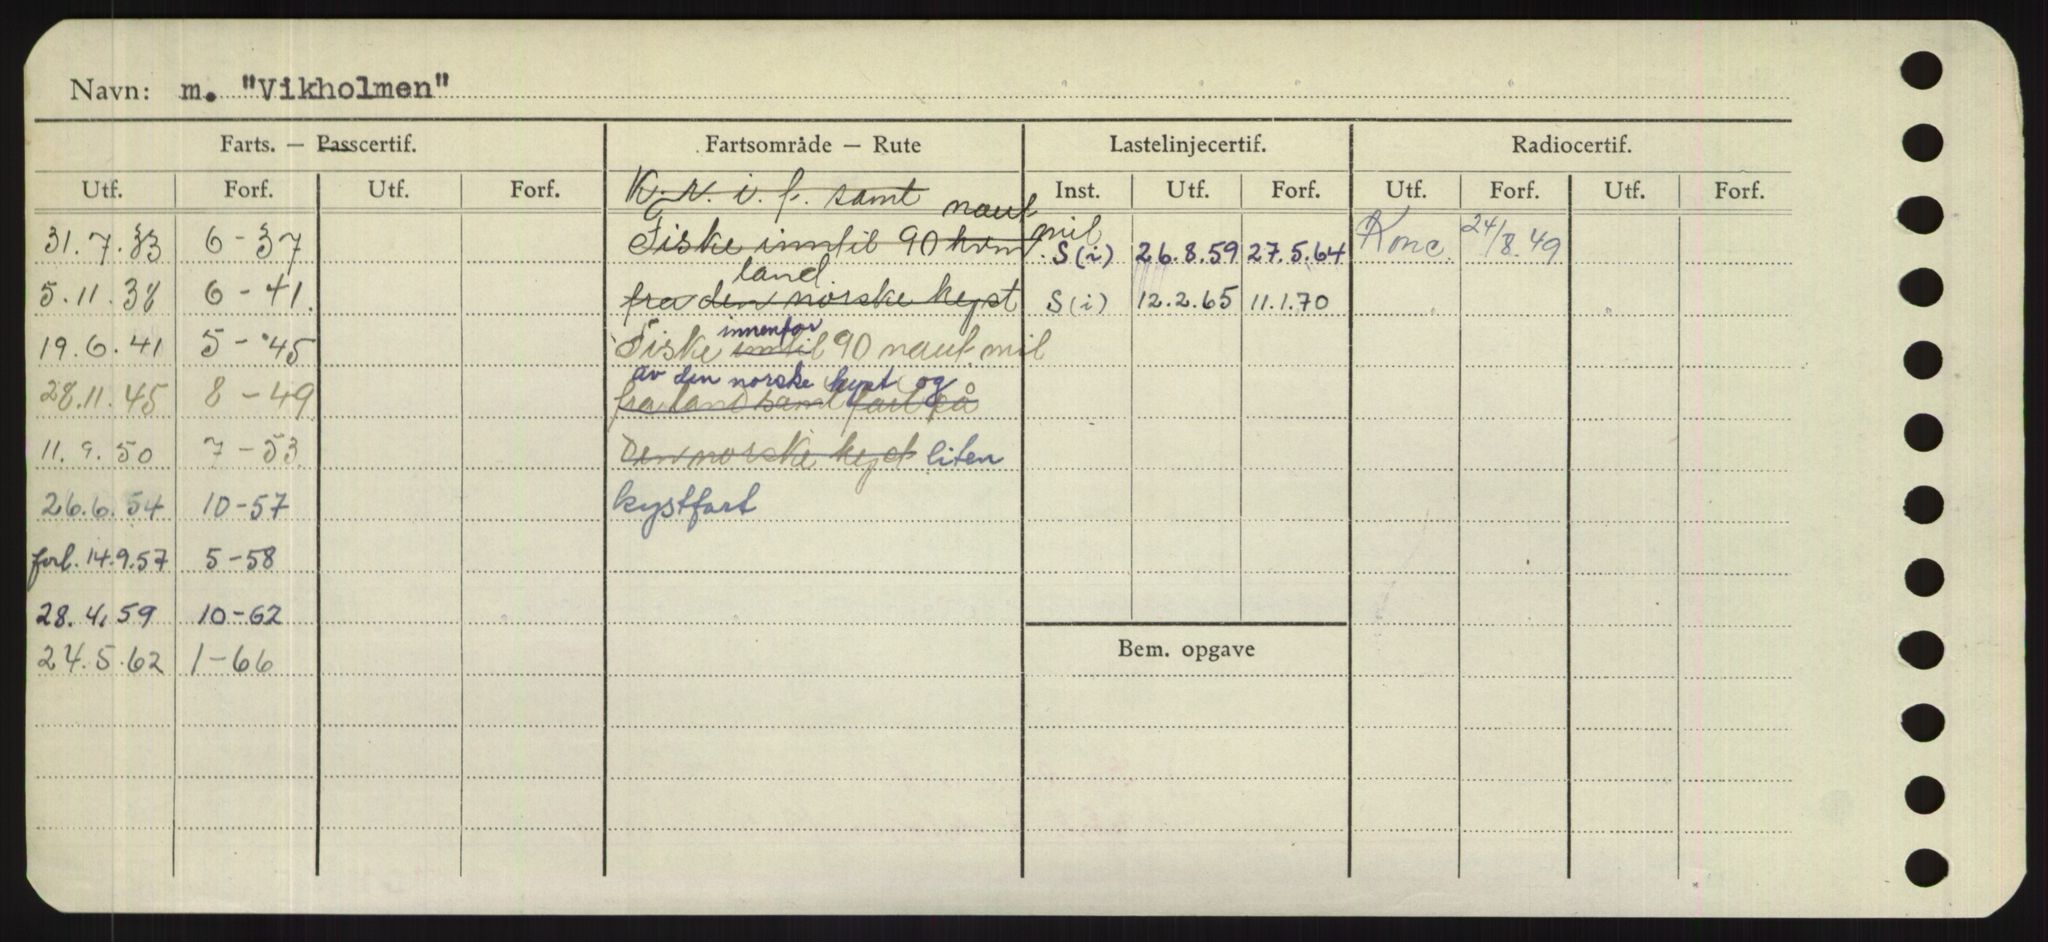 Navn: m. "Vikholmen"
Farts. — Passcertif. Fartsområde — Rute Lastelinjecertif. Radiocertif.
Utf. Forf. Utf. Forf. K. r. i. f. samt Inst. Utf. Forf. Utf. Forf. Utf. Forf.
naut mil
31.7.33 6-37 Fiske inntil 90 kvm S(i) 26.8.59 27.5.64 Konc. 24/8.49
land
5.11.38 6-41. fra den norske kyst S(i) 12.2.65 11.1.70
innenfor
19.6.41 5-45 Fiske inntil 90 naut mil
av den norske kyst og
28.11.45 8-49 fra land samt fart på
11.9.50 7-53 den norske kyst liten
26.6.54 10-57 kystfart
forl. 14.9.57 5-58
28.4.59 10-62
Bem. opgave
24.5.62 1-66